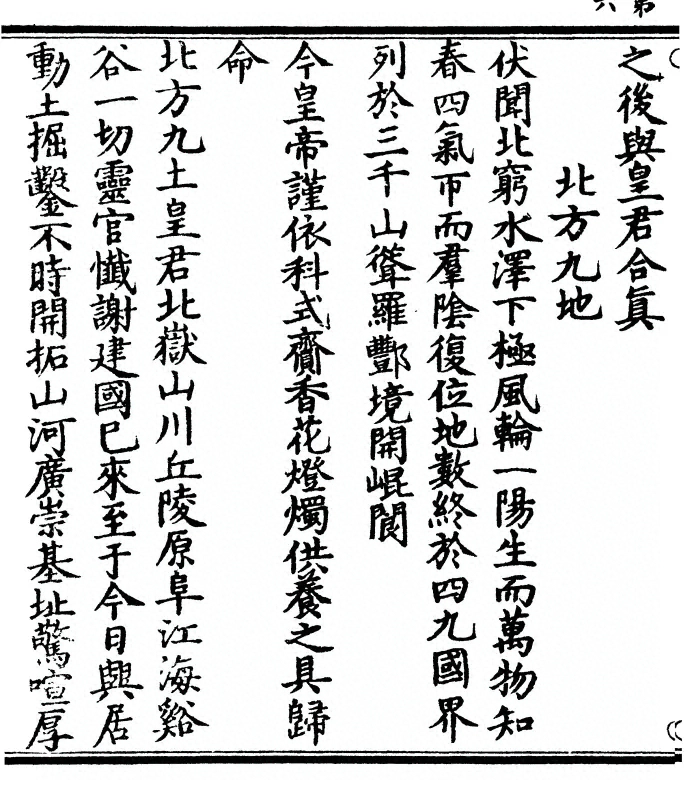 第六
之後與皇君合眞
北方九地
伏聞北窮水澤下極風輪一陽生而萬物知
春四氣帀而羣陰復位地數終於四九國界
列於三千山聳羅酆境開崐閬
今皇帝謹依科式齎香花燈燭供養之具歸
命
北方九土皇君北嶽山川丘陵原阜江海谿
谷一切靈官懺謝建國已來至于今日與居
動土掘鑿不時開拓山河廣崇基址驚喧厚